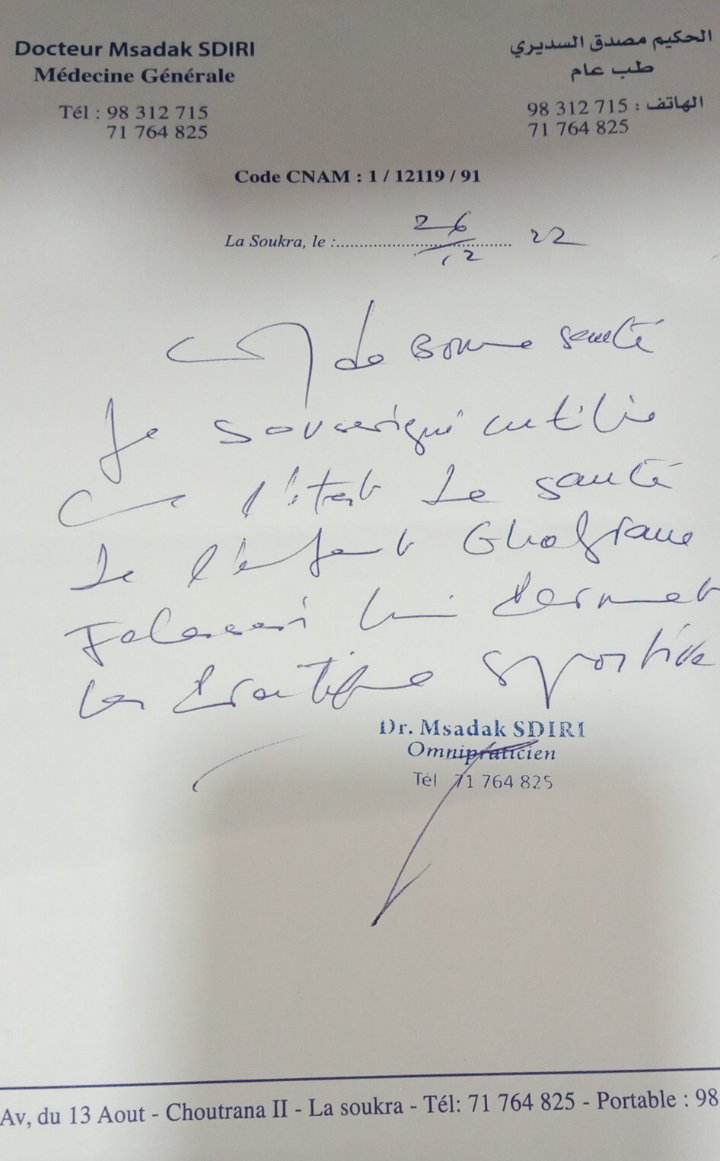 Docteur Msadak SDIRI
Médecine Générale
Tél : 98 312 715
71 764 825
الحكيم مصدق السديري
طب عام
الهاتف : 98 312 715
71 764 825
Code CNAM : 1 / 12119 / 91
La Soukra, le : 26/12 22
de Bonne santé
Je soussigné certifie
que l'état de santé
de l'enfant Ghofrane
lui permet
la pratique sportive
Dr. Msadak SDIRI
Omnipraticien
Tél 71 764 825
Av, du 13 Aout - Choutrana II - La soukra - Tél: 71 764 825 - Portable : 98